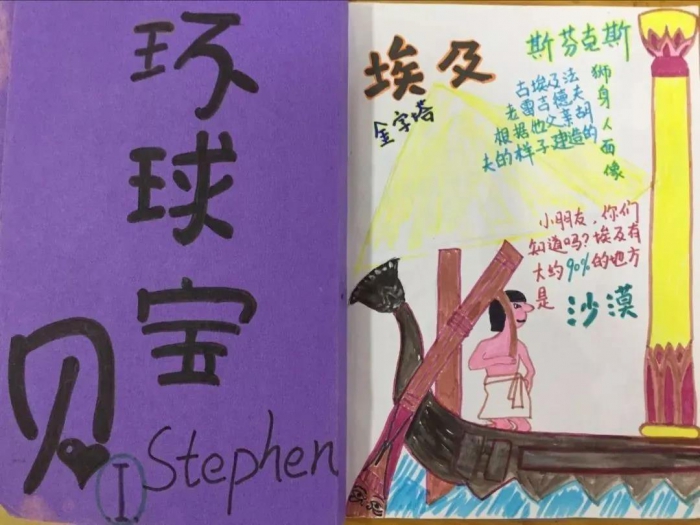 环
球
宝
贝
I Stephen
埃及
金字塔
斯芬克斯
狮身人面像
古埃及法
老雷吉德夫
根据他父亲胡
夫的样子建造的
小朋友,你们
知道吗?埃及有
大约90%的地方
是 沙漠